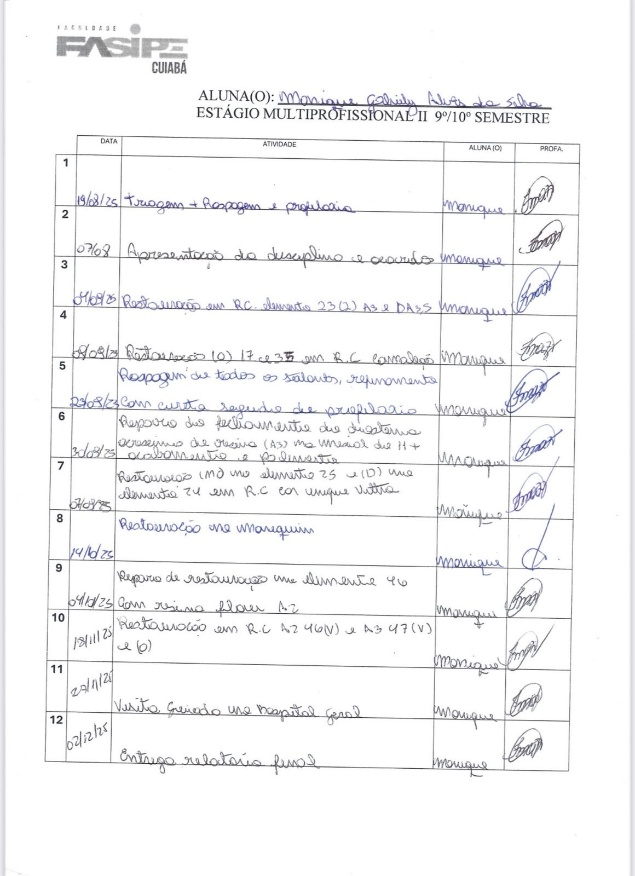 FACULDADE
FASIPE
CUIABÁ
ALUNA(O): Monique Gabriely Alves da Silva
ESTÁGIO MULTIPROFISSIONAL II 9º/10º SEMESTRE
DATA ATIVIDADE ALUNA (O) PROFA.
1
19/08/25 Triagem + Raspagem e profilaxia Monique
2
07/08 Apresentação da disciplina e acordos Monique
3
04/09/25 Restauração em R.C. elemento 23(2) A3 e DA3,5 Monique
4
Restauração (O) 17 e 35 em R.C Monique
5
Raspagem de todos os sextantes, refinamento
23/09/25 Com cureta seguido de profilaxia Monique
6
Reparo de fechamento de diastema
acréscimo de resina (A3) na mesial do 11 +
30/09/25 acabamento e polimento Monique
7
Restauração (M) no elemento 25 e (D) no
elemento 24 em R.C cor unique Vittra
Monique
8
Restauração no manequim
14/10/25 Monique
9
Reparo de restauração no elemento 46
Com resina flow A2 Monique
10
18/11/25 Restauração em R.C A2 46(V) e A3 47(V)
e (O) Monique
11
Visita Guiada no Hospital Geral Monique
12
02/12/25
Entrega relatório final Monique